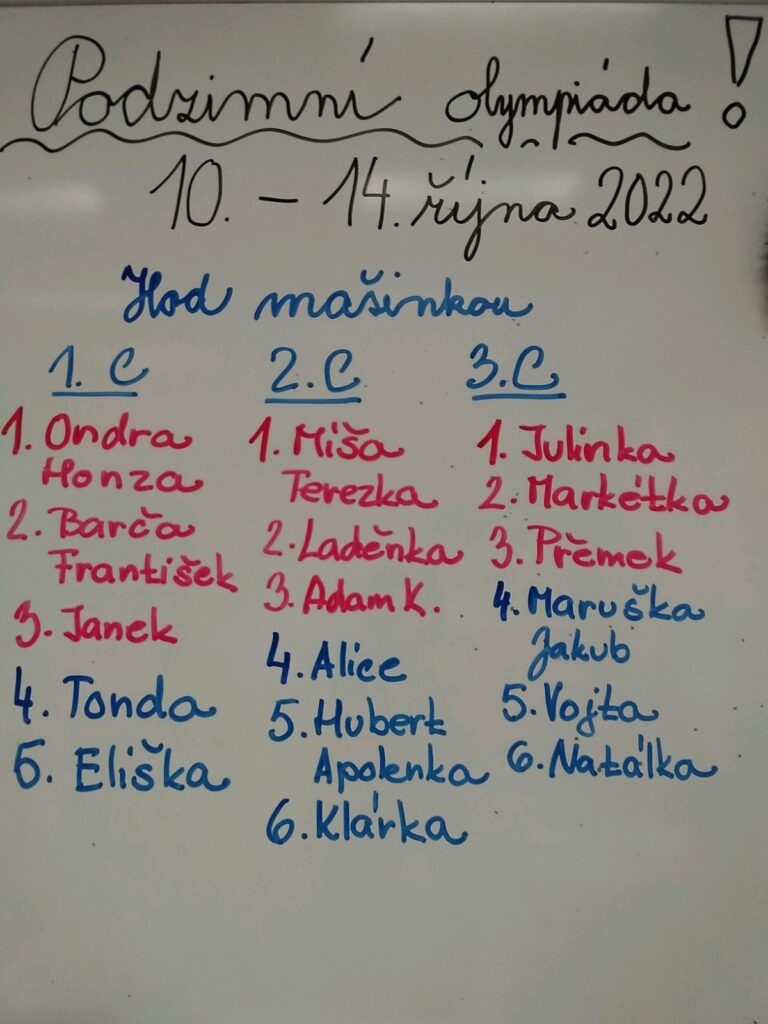 Podzimní olympiáda!
10. – 14. října 2022
Hod mašinkou
1. C
1. Ondra
Honza
2. Barča
František
3. Janek
4. Tonda
5. Eliška
2. C
1. Míša
Terezka
2. Laděnka
3. Adam K.
4. Alice
5. Hubert
Apolenka
6. Klárka
3. C
1. Julinka
2. Markétka
3. Přemek
4. Maruška
Jakub
5. Vojta
6. Natálka